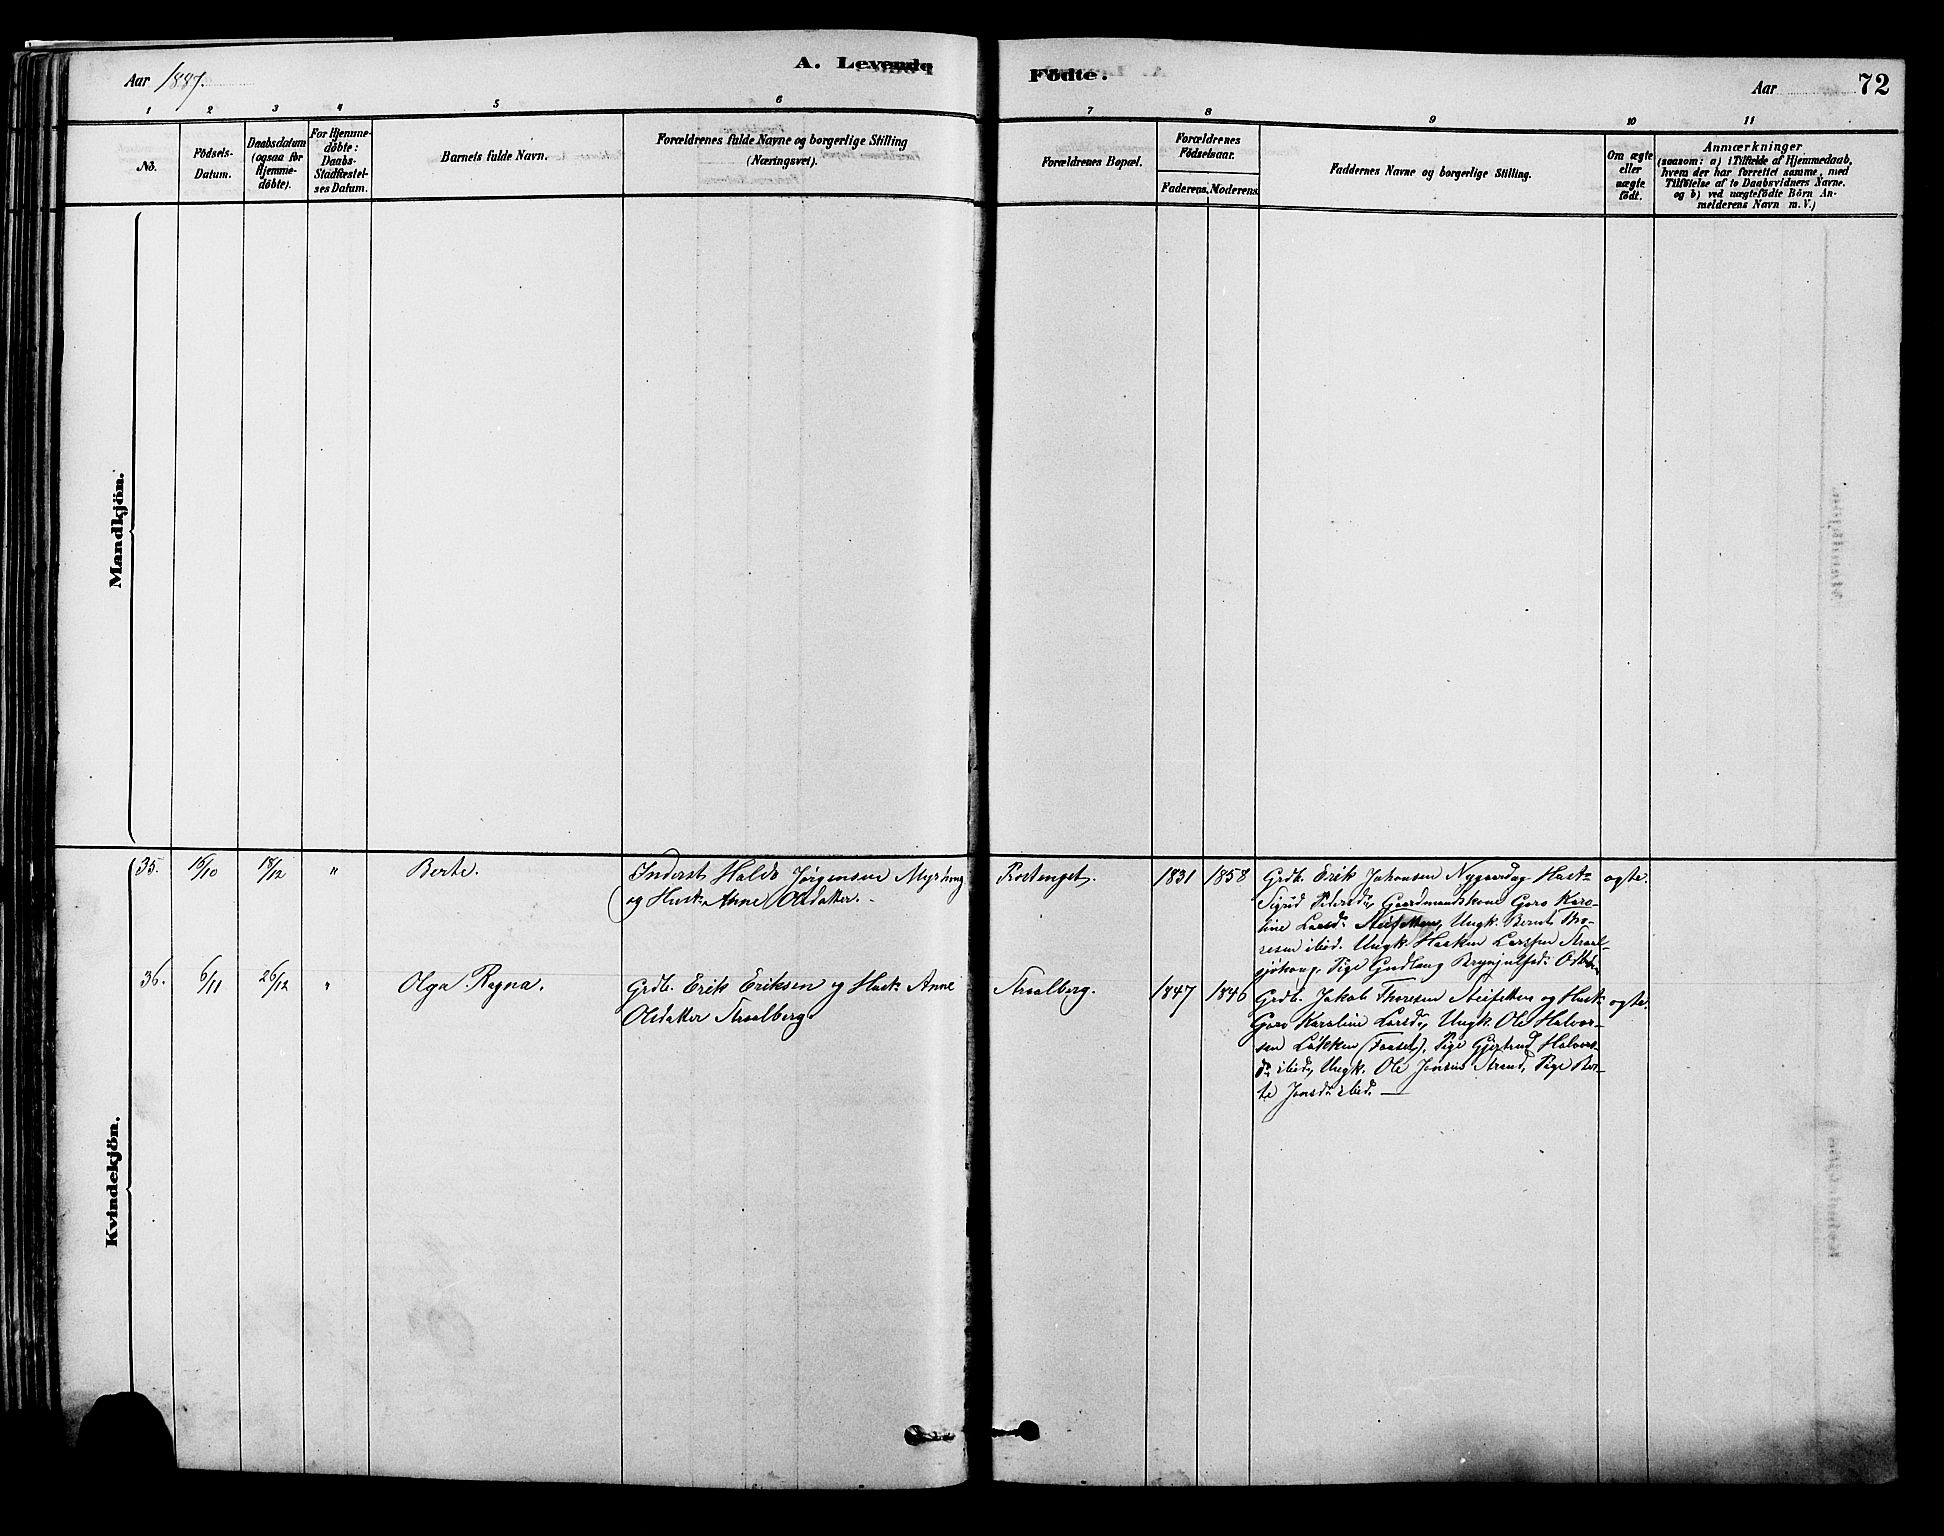 Aar 1887.
A. Levende
Födte.
Aar
72
1 2 3 4 5 6 7 8 9 10 11
No.
Födsels-
Datum.
Daabsdatum
(ogsaa for
Hjemme-
döbte).
For Hjemme-
döbte:
Daabs-
Stadfæstel-
ses Datum.
Barnets fulde Navn.
Forældrenes fulde Navne og borgerlige Stilling
(Næringsvei).
Forældrenes Bopæl.
Forældrenes
Födselsaar.
Faderens. Moderens.
Faddernes Navne og borgerlige Stilling.
Om ægte
eller
uægte
födt.
Anmærkninger
(saasom: a) i Tilfælde af Hjemmedaab,
hvem der har forrettet samme, med
Tilföielse af to Daabsvidners Navne.
og b) ved uægtefödte Börn An-
melderens Navn m. V.)
Mandkjön.
Kvindekjön.
35.
15/10
18/12
"
Berte.
Inderst Haldo Jørgensen
og Hust. Anne Olsdatter.
1831
1858
Grdb. Erik Johansen Nygaard og Hust
Sigrid Pedersd, Gaardmandskone Goro Karo-
line Larsd, Ungk. Bernt Tho-
resen ibid. Ungk Haaken Larssen
Pige Gudlaug Brynjulfsd:
ægte.
36.
6/11
26/12
"
Olga Ragna.
Grdb. Erik Eriksen og Hust Anne
Olsdatter Straalberg
Straalberg.
1847
1846
Grdb. Jakob Thoresen og Hust
Goro Karoline Larsd, Ungk. Ole Halvor-
sen Løkken (Faaset), Pige Gjertrud Halvors
D. ibid, Ungk. Ole Jensen Strand, Pige Ber-
te Jonsd ibid.
ægte.